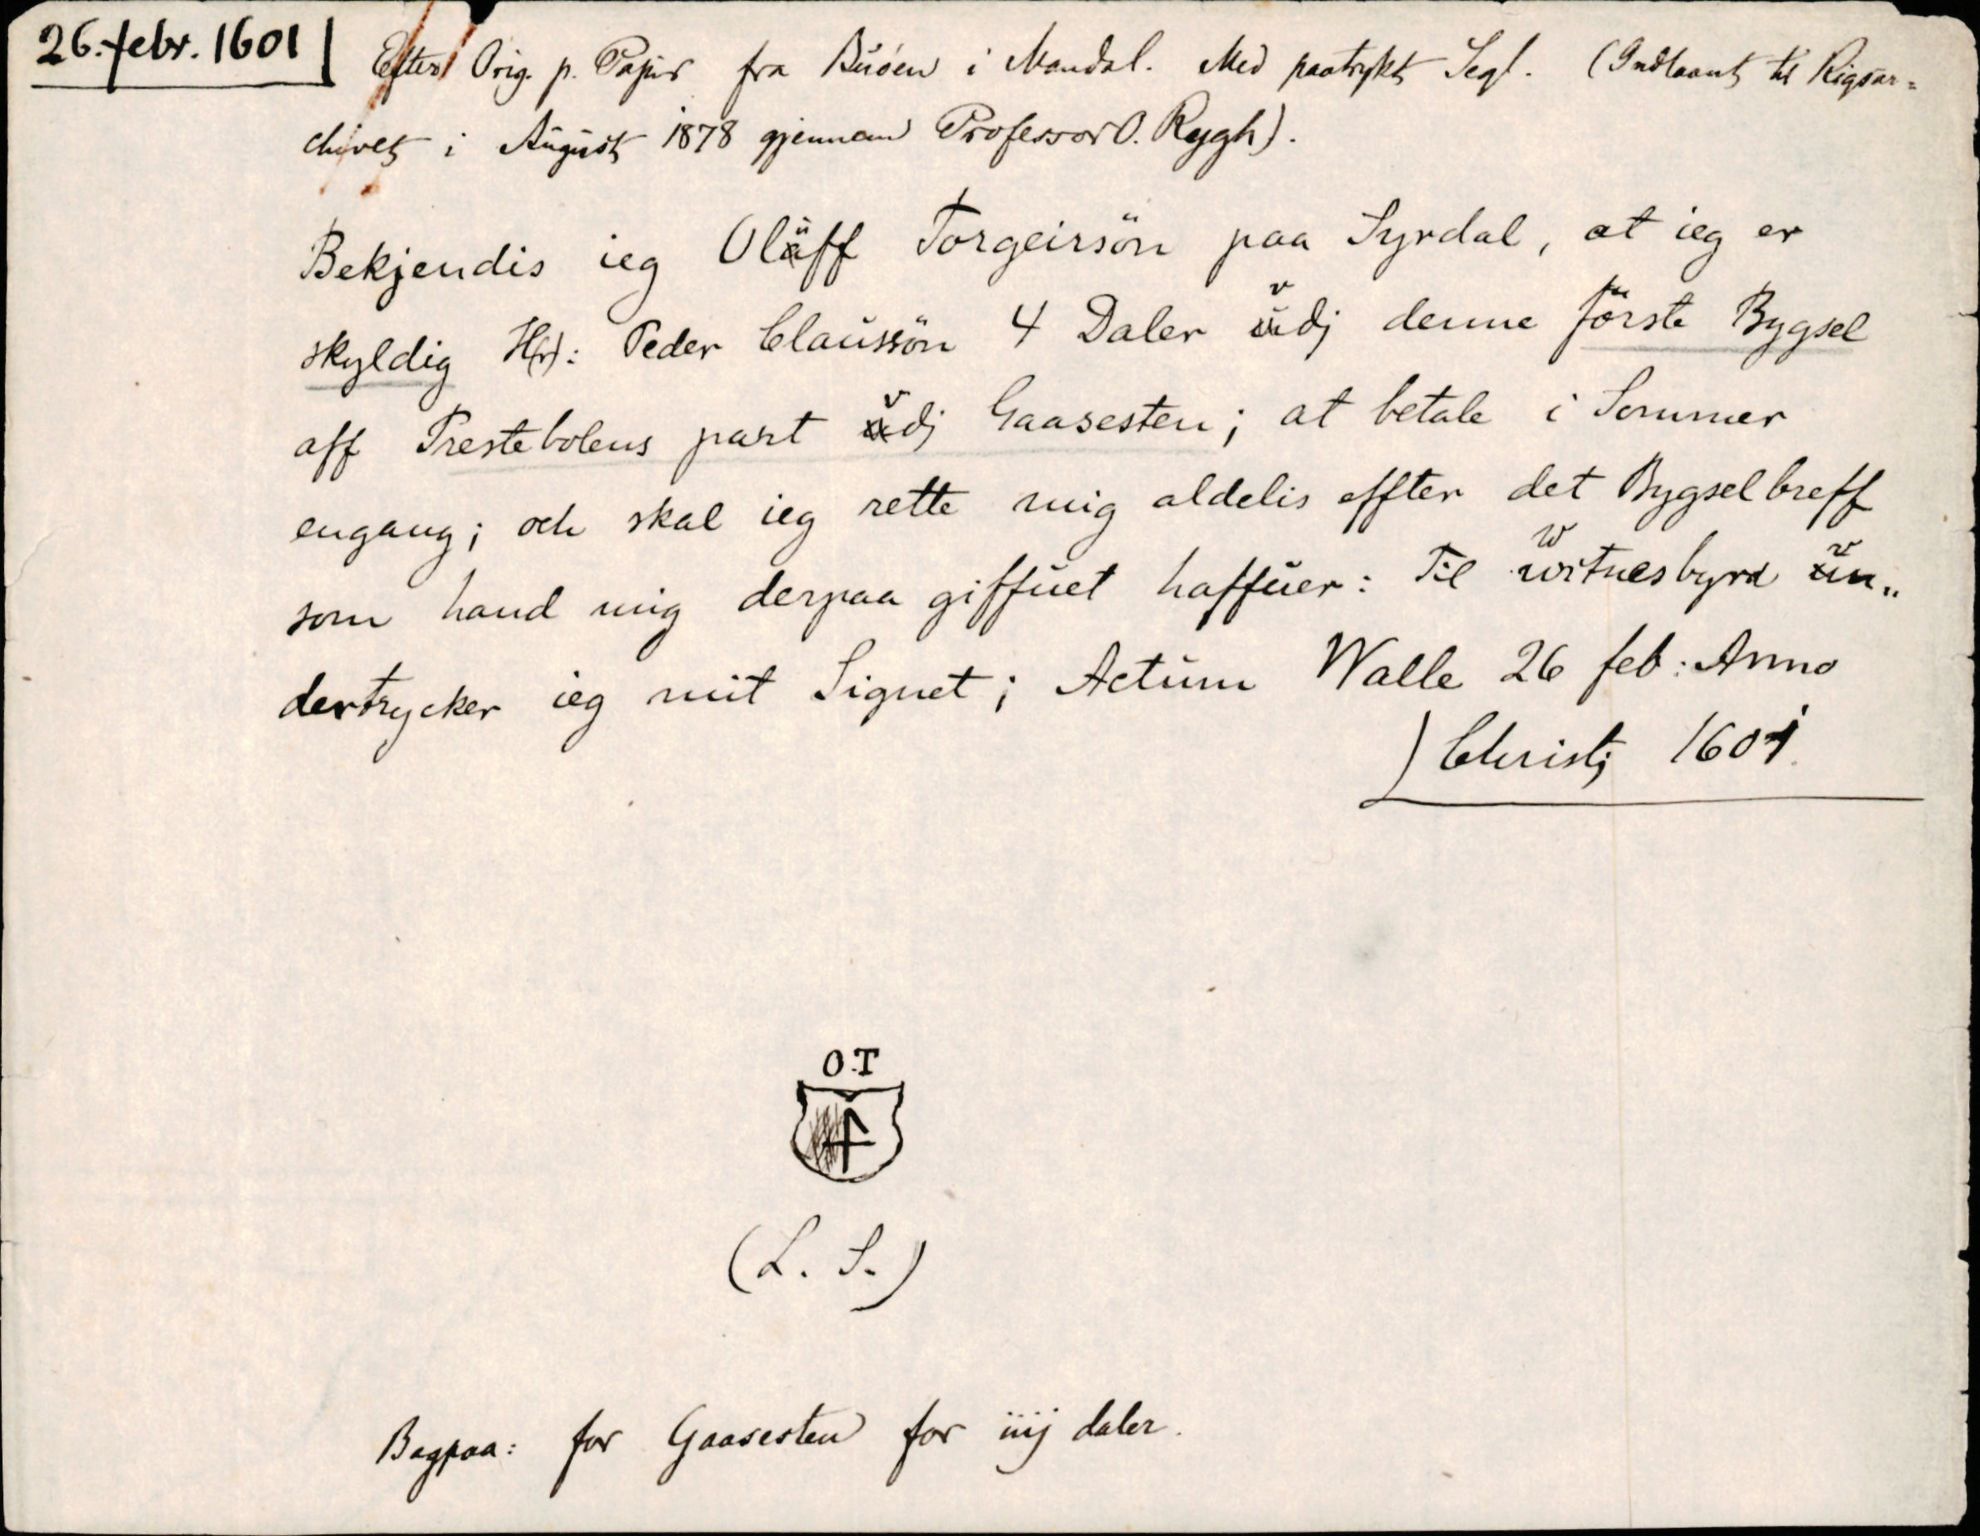 26. febr. 1601
Efter Orig. p. Papir fra Buöen i Mandal. Med paatrykt Segl. (Indlaant til Rigsar=
chivet i August 1878 gjennem Professor O. Rygh).
Bekjendis ieg Oluff Torgeirsön paa Syrdal, at ieg er
skyldig H(r): Peder Claussön 4 Daler vdj denne förste Bygsel
aff Prestebolens part vdj Gaasesten; at betale i Sommer
engang; och skal ieg rette mig aldelis effter det Bygselbreff
som hand mig derpaa giffuet haffuer: Til witnesbyrd vn„
dertrycker ieg mit Signet; Actum Walle 26 feb: Anno
Christj 1601.
O.T
(L. S.)
Bagpaa: for Gaasesten for iiij daler.